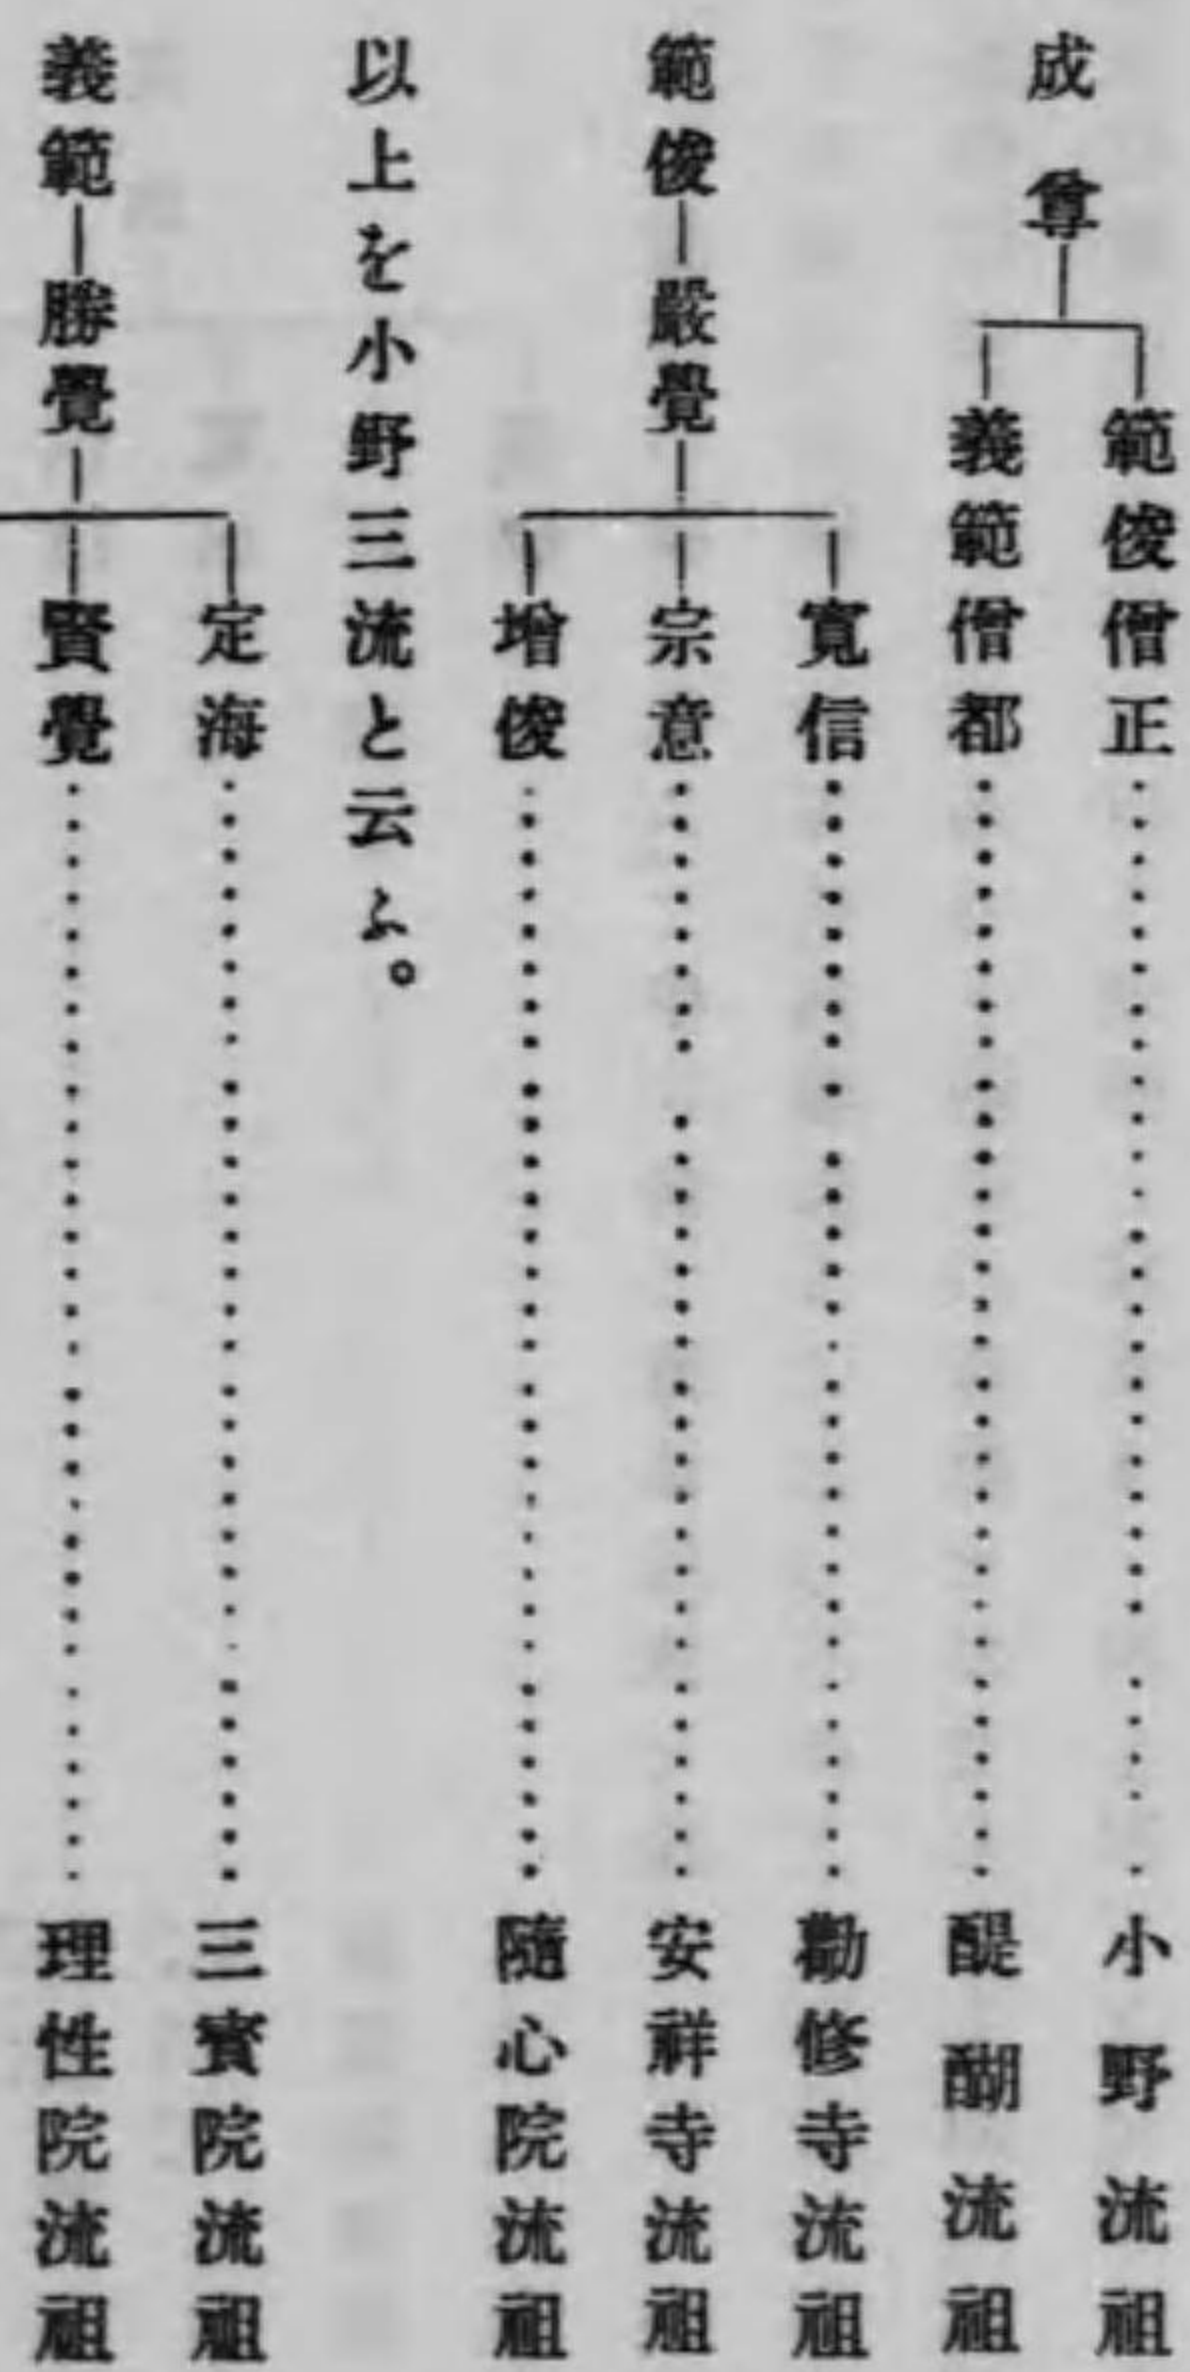 成尊
範俊僧正……小野流祖
義範僧都……醍醐流祖
範俊―嚴覺
寬信……勸修寺流祖
宗意……安祥寺流祖
增俊……隨心院流祖
以上を小野三流と云ふ。
義範―勝覺
定海……三寶院流祖
賢覺……理性院流祖